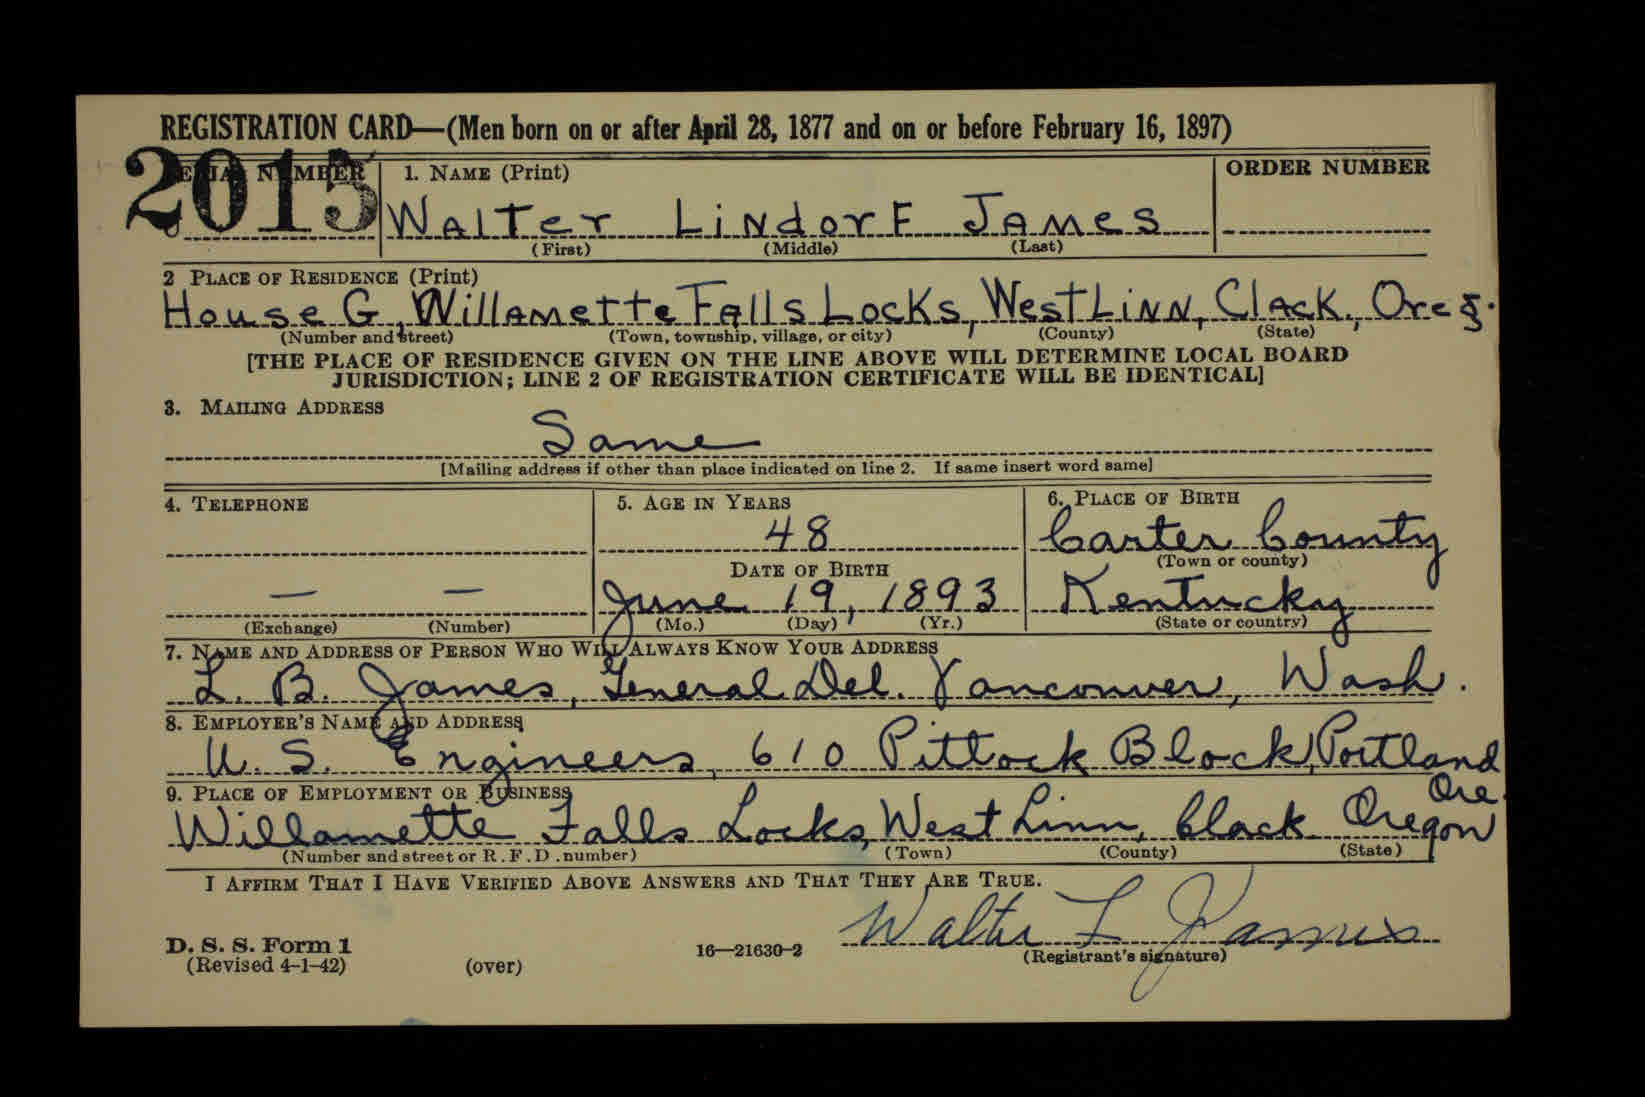 REGISTRATION CARD—(Men born on or after April 28, 1877 and on or before February 16, 1897)
SERIAL NUMBER 1. NAME (Print) ORDER NUMBER
2015 Walter Lindorf James
(First) (Middle) (Last)
2 PLACE OF RESIDENCE (Print)
House G, Willamette Falls Locks, West Linn, Clack., Oreg.
(Number and street) (Town, township, village, or city) (County) (State)
[THE PLACE OF RESIDENCE GIVEN ON THE LINE ABOVE WILL DETERMINE LOCAL BOARD
JURISDICTION; LINE 2 OF REGISTRATION CERTIFICATE WILL BE IDENTICAL]
3. MAILING ADDRESS
Same
[Mailing address if other than place indicated on line 2. If same insert word same]
4. TELEPHONE 5. AGE IN YEARS 6. PLACE OF BIRTH
48 Carter County
DATE OF BIRTH (Town or county)
— — June 19, 1893 Kentucky
(Exchange) (Number) (Mo.) (Day) (Yr.) (State or country)
7. NAME AND ADDRESS OF PERSON WHO WILL ALWAYS KNOW YOUR ADDRESS
L. B. James, General Del. Vancouver, Wash.
8. EMPLOYER'S NAME AND ADDRESS
U. S. Engineers, 610 Pittock Block, Portland
Ore.
9. PLACE OF EMPLOYMENT OR BUSINESS
Willamette Falls Locks, West Linn, Clack. Oregon
(Number and street or R. F. D. number) (Town) (County) (State)
I AFFIRM THAT I HAVE VERIFIED ABOVE ANSWERS AND THAT THEY ARE TRUE.
Walter L James
D. S. S. Form 1
(Revised 4-1-42) (over) 16—21630-2 (Registrant's signature)